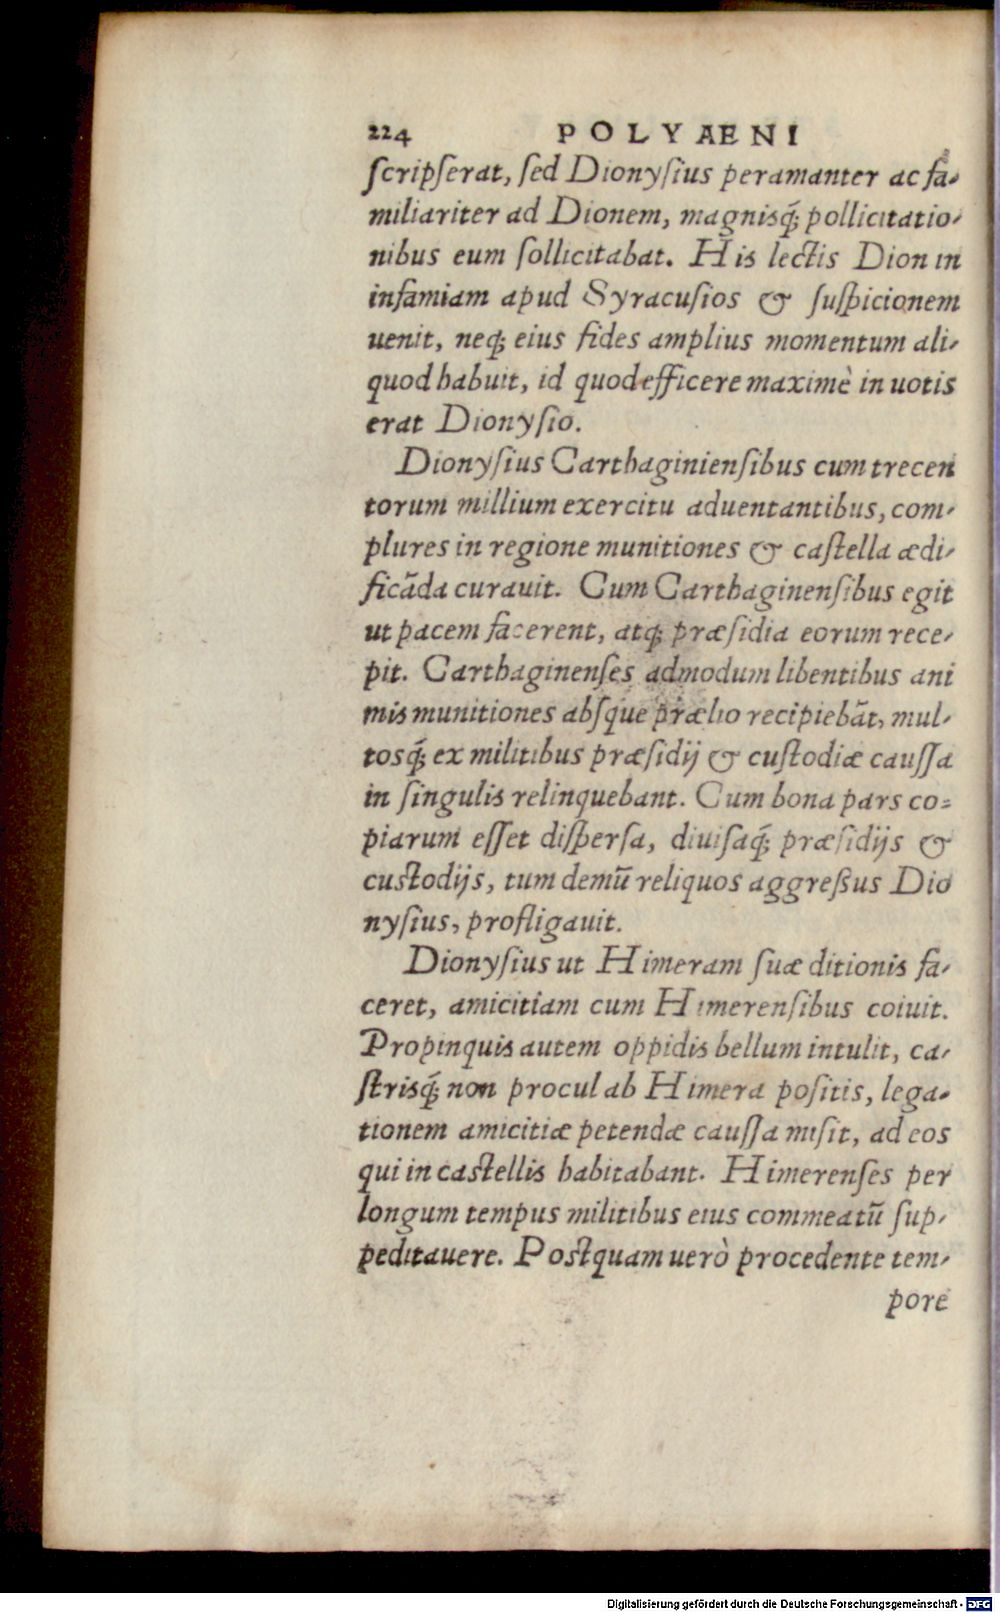 224 POLYAENI
ſcripſerat, ſed Dionyſius peramanter ac fa-
miliariter ad Dionem, magnisq́; pollicitatio-
nibus eum ſollicitabat. His lectis Dion in
infamiam apud Syracuſios & ſuſpicionem
uenit, neq; eius fides amplius momentum ali-
quod habuit, id quod efficere maximè in uotis
erat Dionyſio.
Dionyſius Carthaginienſibus cum trecen
torum millium exercitu aduentantibus, com-
plures in regione munitiones & caſtella ædi-
ficãda curauit. Cum Carthaginenſibus egit
ut pacem facerent, atq; præſidia eorum rece-
pit. Carthaginenſes admodum libentibus ani
mis munitiones abſque prælio recipiebãt, mul-
tosq́; ex militibus præſidij & cuſtodiæ cauſſa
in ſingulis relinquebant. Cum bona pars co-
piarum eſſet diſperſa, diuiſaq́; præſidijs &
cuſtodijs, tum demũ reliquos aggreßus Dio
nyſius, profligauit.
Dionyſius ut Himeram ſuæ ditionis fa-
ceret, amicitiam cum Himerenſibus coiuit.
Propinquis autem oppidis bellum intulit, ca-
ſtrisq́; non procul ab Himera poſitis, lega-
tionem amicitiæ petendæ cauſſa miſit, ad eos
qui in caſtellis habitabant. Himerenſes per
longum tempus militibus eius commeatũ ſup-
peditauere. Poſtquam uerò procedente tem-
pore
Digitalisierung gefördert durch die Deutsche Forschungsgemeinschaft - DFG